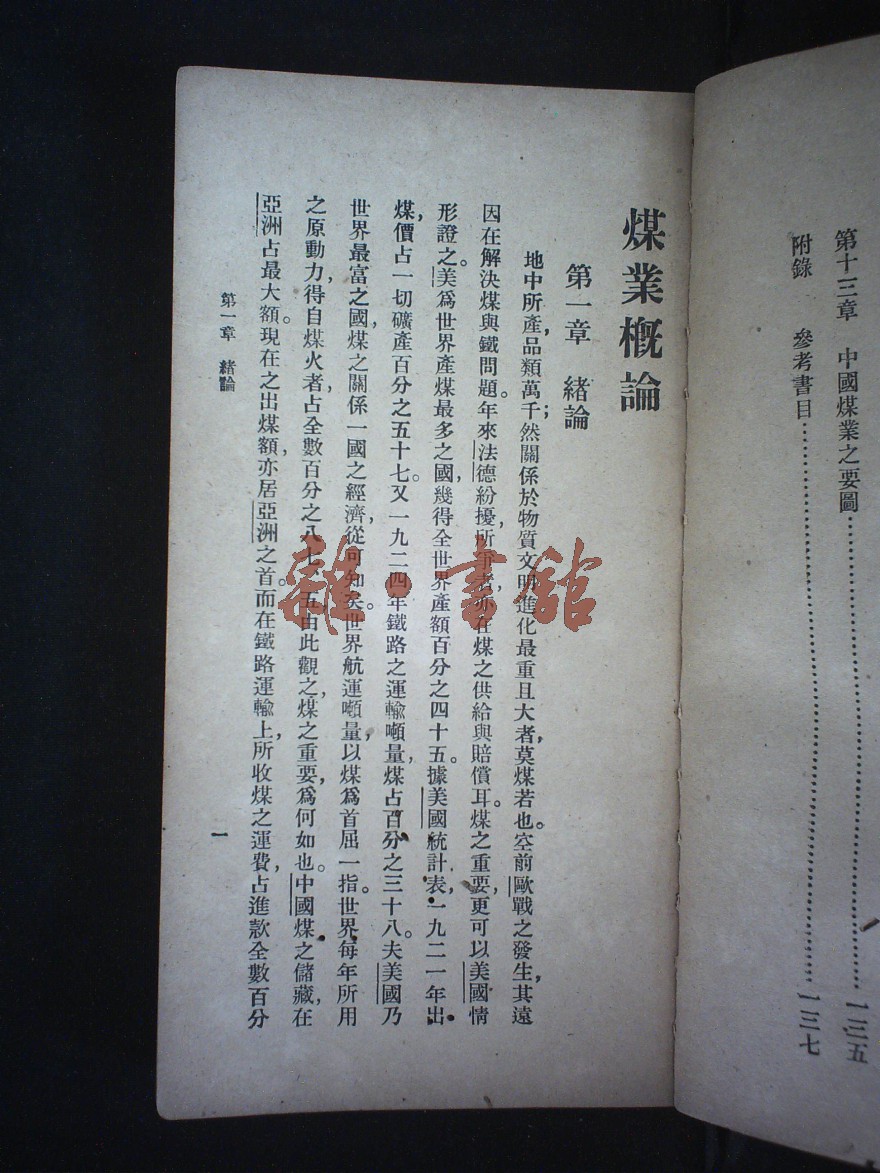 第十三章　中國煤業之要圖……………………一三五
附錄　參考書目……………………一三七
煤業概論
第一章　緒論
地中所產，品類萬千；然關係於物質文明進化最重且大者，莫煤若也。空前歐戰之發生，其遠
因在解決煤與鐵問題。年來法德紛擾，所爭者，亦在煤之供給與賠償耳。煤之重要，更可以美國情
形證之。美爲世界產煤最多之國，幾得全世界產額百分之四十五。據美國統計表，一九二一年出
煤，煤價占一切礦產百分之五十七。又一九二四年鐵路之運輸噸量，煤占百分之三十八。夫美國乃
世界最富之國，煤之關係一國之經濟，從可知矣。世界航運噸量，以煤爲首屈一指。世界每年所用
之原動力，得自煤火者，占全數百分之八七·五由此觀之，煤之重要，爲何如也。中國煤之儲藏，在
亞洲占最大額。現在之出煤額，亦居亞洲之首。而在鐵路運輸上，所收煤之運費，占進款全數百分
第一章　緒論
一
雜·書館